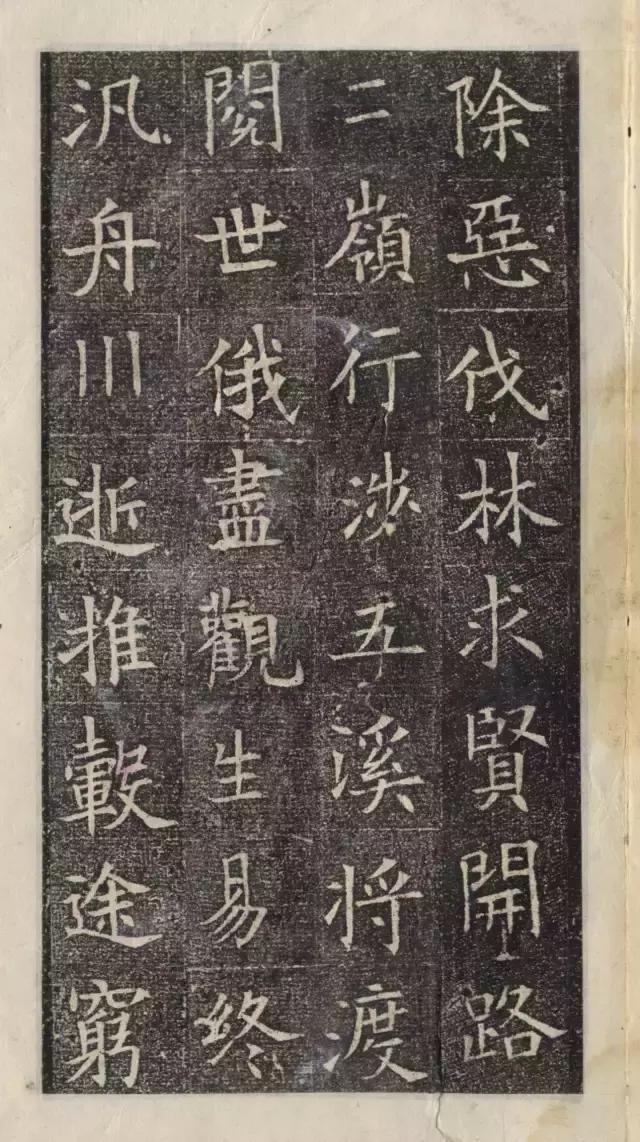 除惡伐林求賢開路
二嶺行涉五溪將渡
閱世俄盡觀生易終
汎舟川逝推轂途窮